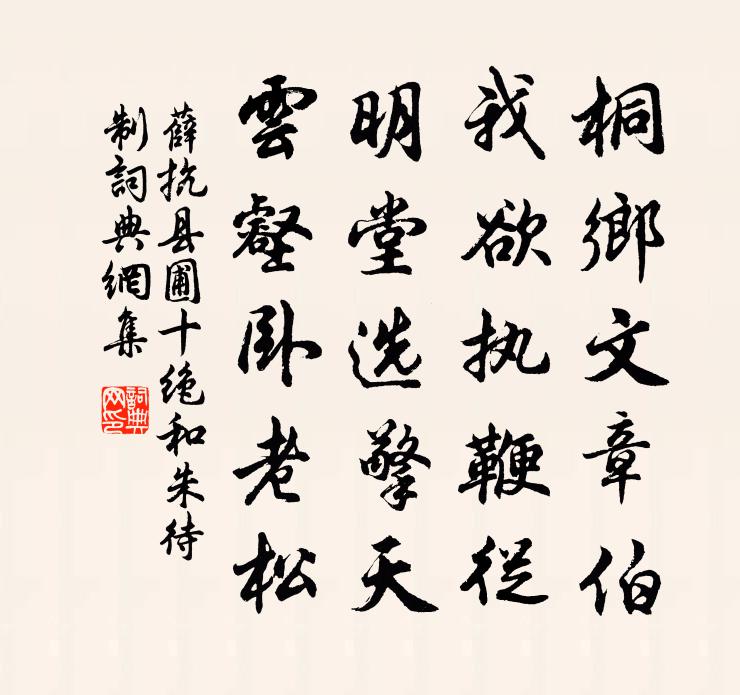 桐鄉文章伯
我欲执鞭從
明堂选擎天
雲壑卧老松
薛抗县圃十绝和朱待
制詞典網集
詞典
网印